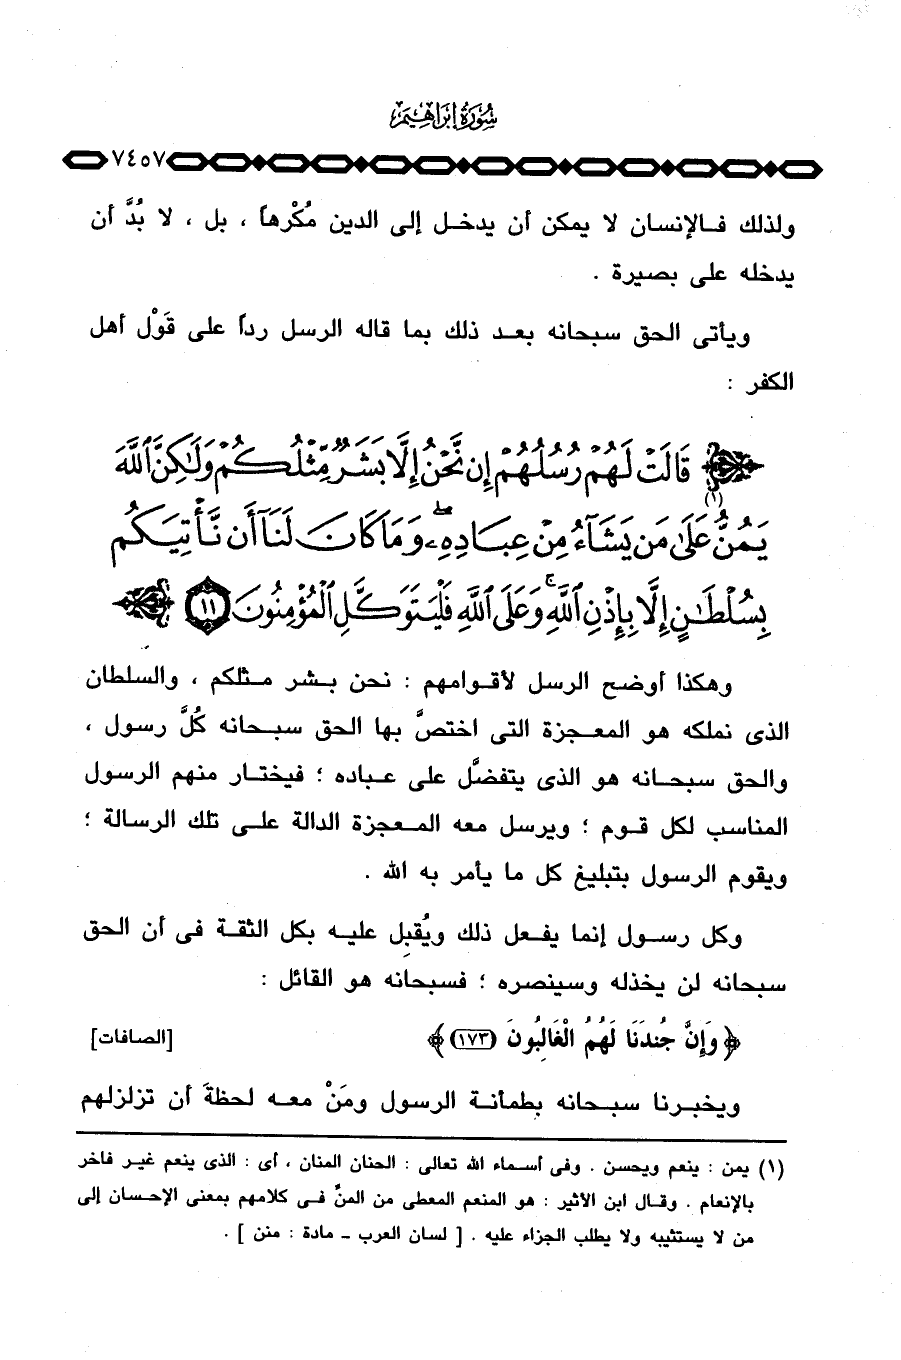 سُورَةُ إِبْرَاهِيمَ
٧٤٥٧
ولذلك فالإنسان لا يمكن أن يدخل إلى الدين مُكْرهاً ، بل ، لا بُدَّ أن
يدخله على بصيرة .
ويأتى الحق سبحانه بعد ذلك بما قاله الرسل رداً على قَوْل أهل
الكفر :
قَالَتْ لَهُمْ رُسُلُهُمْ إِن نَّحْنُ إِلَّا بَشَرٌ مِّثْلُكُمْ وَلَٰكِنَّ ٱللَّهَ
يَمُنُّ (١) عَلَىٰ مَن يَشَآءُ مِنْ عِبَادِهِۦ ۖ وَمَا كَانَ لَنَآ أَن نَّأْتِيَكُم
بِسُلْطَٰنٍ إِلَّا بِإِذْنِ ٱللَّهِ ۚ وَعَلَى ٱللَّهِ فَلْيَتَوَكَّلِ ٱلْمُؤْمِنُونَ ١١
وهكذا أوضح الرسل لأقوامهم : نحن بشر مثلكم ، والسلطان
الذى نملكه هو المعجزة التى اختصَّ بها الحق سبحانه كُلَّ رسول ،
والحق سبحانه هو الذى يتفضَّل على عباده ؛ فيختار منهم الرسول
المناسب لكل قوم ؛ ويرسل معه المعجزة الدالة على تلك الرسالة ؛
ويقوم الرسول بتبليغ كل ما يأمر به الله .
وكل رسول إنما يفعل ذلك ويُقبِل عليه بكل الثقة فى أن الحق
سبحانه لن يخذله وسينصره ؛ فسبحانه هو القائل :
﴿ وَإِنَّ جُندَنَا لَهُمُ الْغَالِبُونَ (١٧٣) ﴾ [الصافات]
ويخبرنا سبحانه بطمأنة الرسول ومَنْ معه لحظةَ أن تزلزلهم
(١) يمن : ينعم ويحسن . وفى أسماء الله تعالى : الحنان المنان ، أى : الذى ينعم غير فاخر
بالإنعام . وقال ابن الأثير : هو المنعم المعطى من المنِّ فى كلامهم بمعنى الإحسان إلى
من لا يستثيبه ولا يطلب الجزاء عليه . [ لسان العرب - مادة : منن ] .